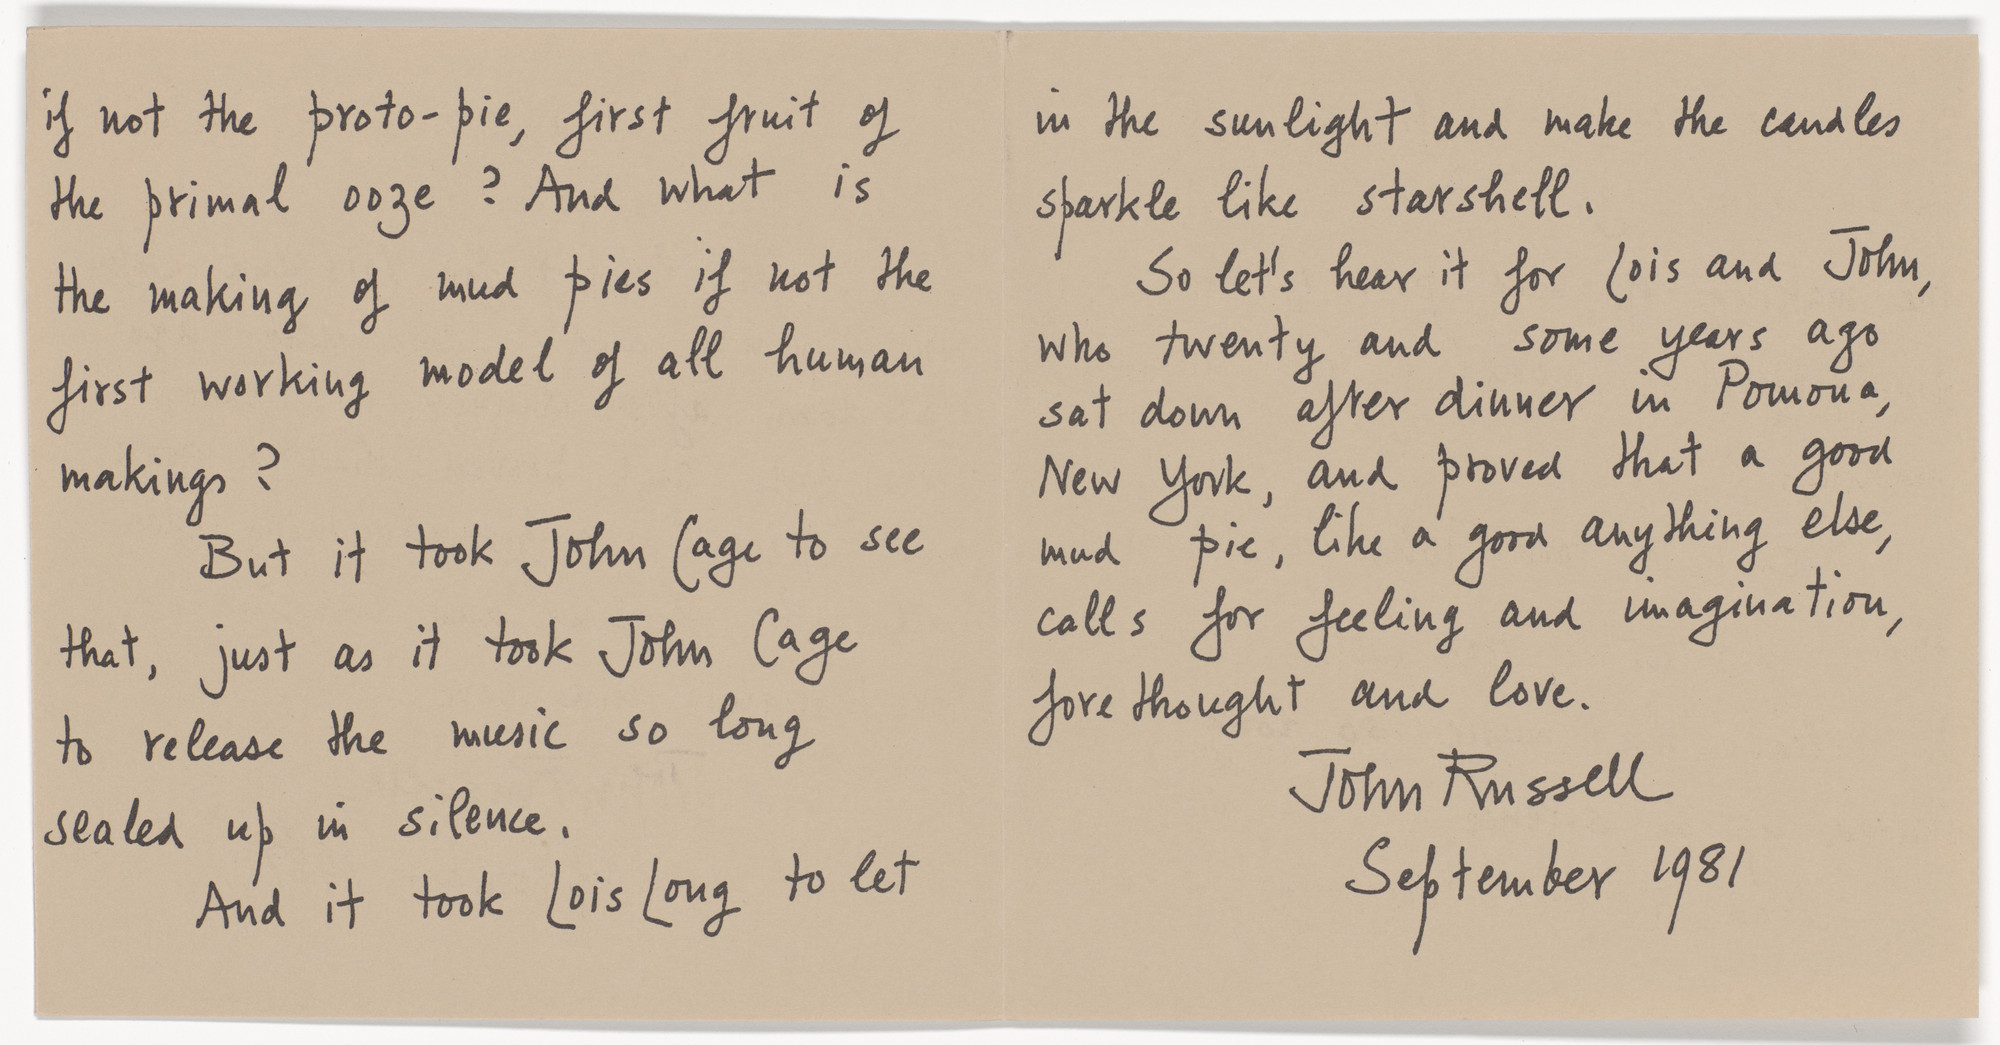 if not the proto-pie, first fruit of
the primal ooze? And what is
the making of mud pies if not the
first working model of all human
makings?
But it took John Cage to see
that, just as it took John Cage
to release the music so long
sealed up in silence.
And it took Lois Long to let
in the sunlight and make the candles
sparkle like starshell.
So let's hear it for Lois and John,
who twenty and some years ago
sat down after dinner in Pomona,
New York, and proved that a good
mud pie, like a good anything else,
calls for feeling and imagination,
forethought and love.
John Russell
September 1981